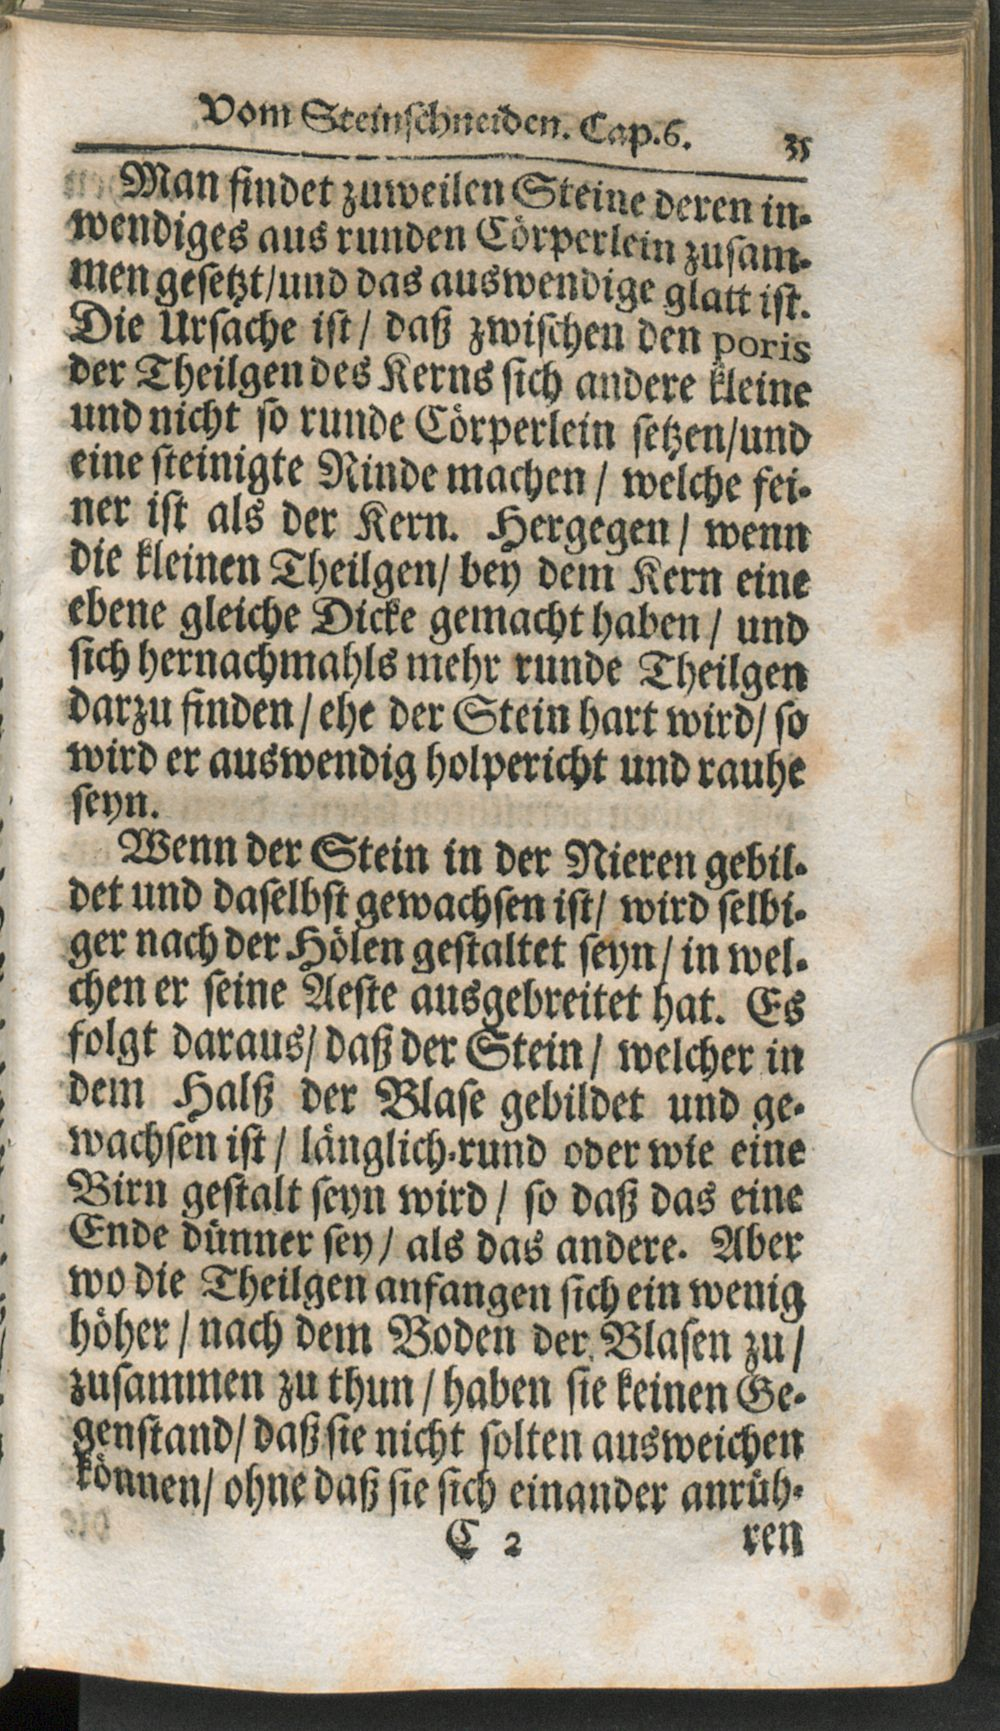 Vom Steinschneiden. Cap. 6. 35
Man findet zuweilen Steine deren in-
wendiges aus runden Cörperlein zusam-
men gesetzt/und das auswendige glatt ist.
Die Ursache ist/ daß zwischen den poris
der Theilgen des Kerns sich andere kleine
und nicht so runde Cörperlein setzen/und
eine steinigte Rinde machen/ welche fei-
ner ist als der Kern. Hergegen/ wenn
die kleinen Theilgen/ bey dem Kern eine
ebene gleiche Dicke gemacht haben/ und
sich hernachmahls mehr runde Theilgen
darzu finden/ehe der Stein hart wird/ so
wird er auswendig holpericht und rauhe
seyn.
Wenn der Stein in der Nieren gebil-
det und daselbst gewachsen ist/ wird selbi-
ger nach der Hölen gestaltet seyn/ in wel-
chen er seine Aeste ausgebreitet hat. Es
folgt daraus/ daß der Stein/ welcher in
dem Halß der Blase gebildet und ge-
wachsen ist/ länglich-rund oder wie eine
Birn gestalt seyn wird/ so daß das eine
Ende dünner sey/ als das andere. Aber
wo die Theilgen anfangen sich ein wenig
höher/ nach dem Boden der Blasen zu/
zusammen zu thun/ haben sie keinen Ge-
genstand/ daß sie nicht solten ausweichen
können/ ohne daß sie sich einander anrüh-
C 2 ren